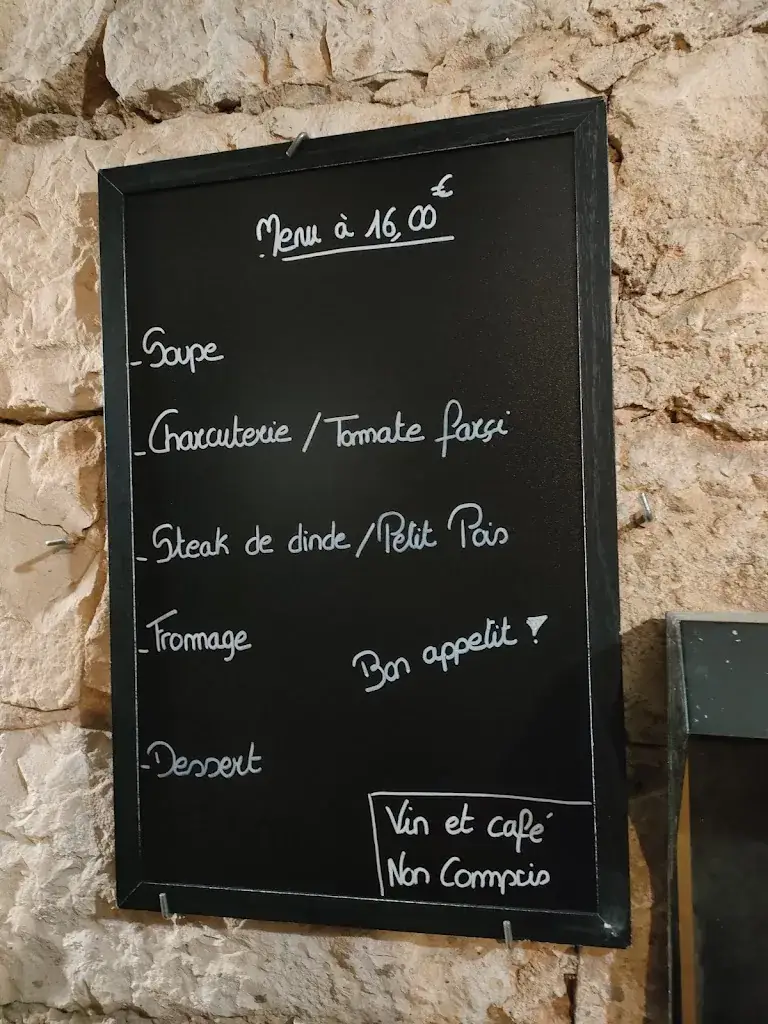 Menu à 16,00€
-Soupe
-Charcuterie / Tomate farçi
-Steak de dinde / Petit Pois
-Fromage
Bon appetit !
-Dessert
Vin et café
Non Compris